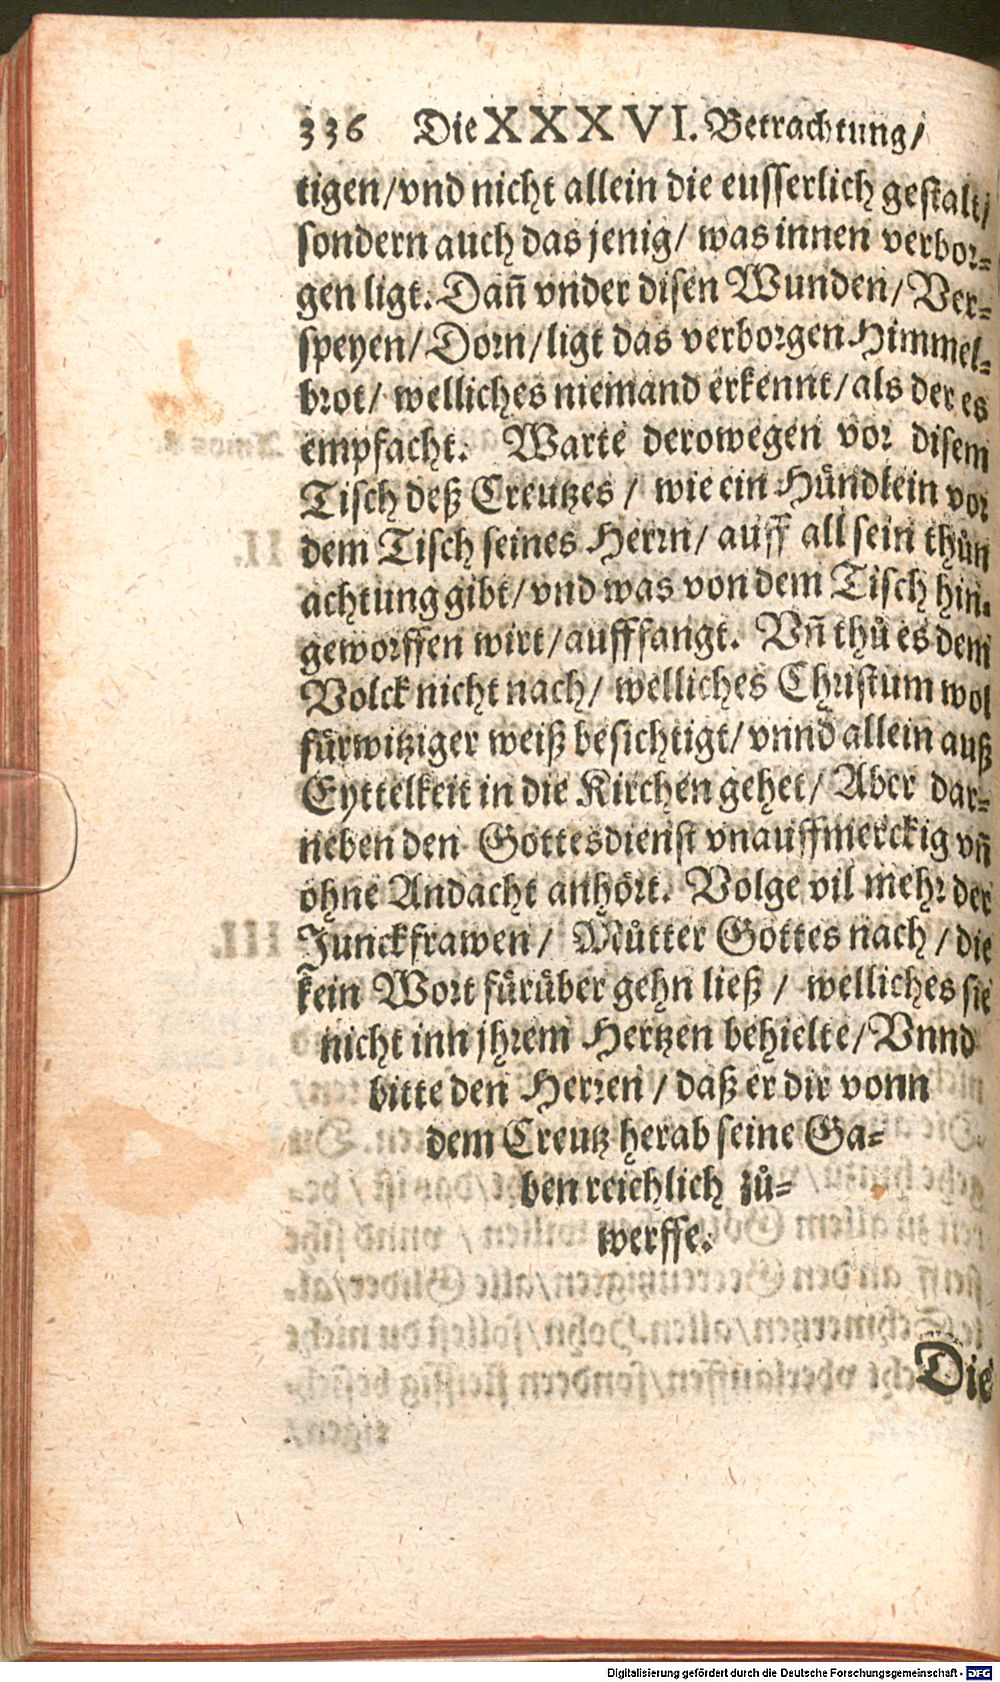 336 Die XXXVI. Betrachtung/
tigen/vnd nicht allein die eusserlich gestalt/
sondern auch das jenig/ was innen verbor-
gen ligt. Dañ vnder disen Wunden/Ver-
speyen/Dorn/ligt das verborgen Himmel-
brot/ welliches niemand erkennt/als der es
empfacht. Warte derowegen vor disem
Tisch deß Creutzes / wie ein Hündlein vor
dem Tisch seines Herrn/ auff all sein thůn
achtung gibt/vnd was von dem Tisch hin-
geworffen wirt/aufffangt. Vñ thů es dem
Volck nicht nach/ welliches Christum wol
fürwitziger weiß besichtigt/vnnd allein auß
Eyttelkeit in die Kirchen gehet/ Aber dar-
neben den Gottesdienst vnauffmerckig vñ
ohne Andacht anhört. Volge vil mehr der
Junckfrawen/ Můtter Gottes nach/die
kein Wort fürüber gehn ließ / welliches sie
nicht inn jhrem Hertzen behielte/Vnnd
bitte den Herren/daß er dir vonn
dem Creutz herab seine Ga-
ben reichlich zů-
werffe.
Die
Digitalisierung gefördert durch die Deutsche Forschungsgemeinschaft - DFG